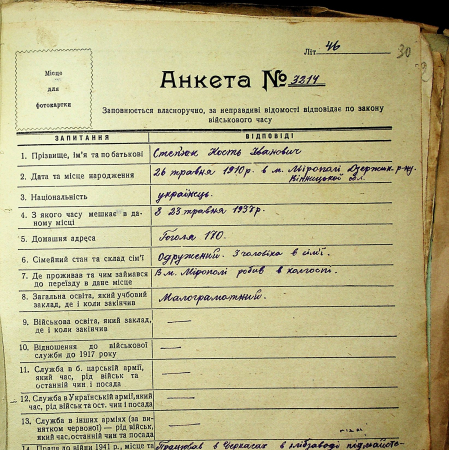 Літ 46
30
Місце
для
фотокартки
Анкета № 3214
Заповнюється власноручно, за неправдиві відомості відповідає по закону
військового часу
ЗАПИТАННЯ ВІДПОВІДІ
1. Прізвище, ім'я та по батькові Степюк Кость Іванович
2. Дата та місце народження 26 травня 1910 р. в м. Мірополі Дзержин. р-ну
Вінницької обл.
3. Національність українець.
4. З якого часу мешкає в да-
ному місці З 23 травня 1937 р.
5. Домашня адреса Гоголя 170.
6. Сімейний стан та склад сім'ї Одружений. 3 чоловіка в сім'ї.
7. Де проживав та чим займався
до переїзду в дане місце В м. Мірополі робив в колгоспі.
8. Загальна освіта, який учбовий
заклад, де і коли закінчив Малограмотний.
9. Військова освіта, який заклад,
де і коли закінчив —
10. Відношення до військової
служби до 1917 року —
11. Служба в б. царській армії,
який час, рід військ та
останній чин і посада —
12. Служба в Українській армії, який
час, рід військ та ост. чин і посада —
13. Служба в інших арміях (за ви-
нятком червоної) — рід військ,
який час, останній чин та посада —
14. Праця до війни 1941 р., місце та Працював в Черкасах